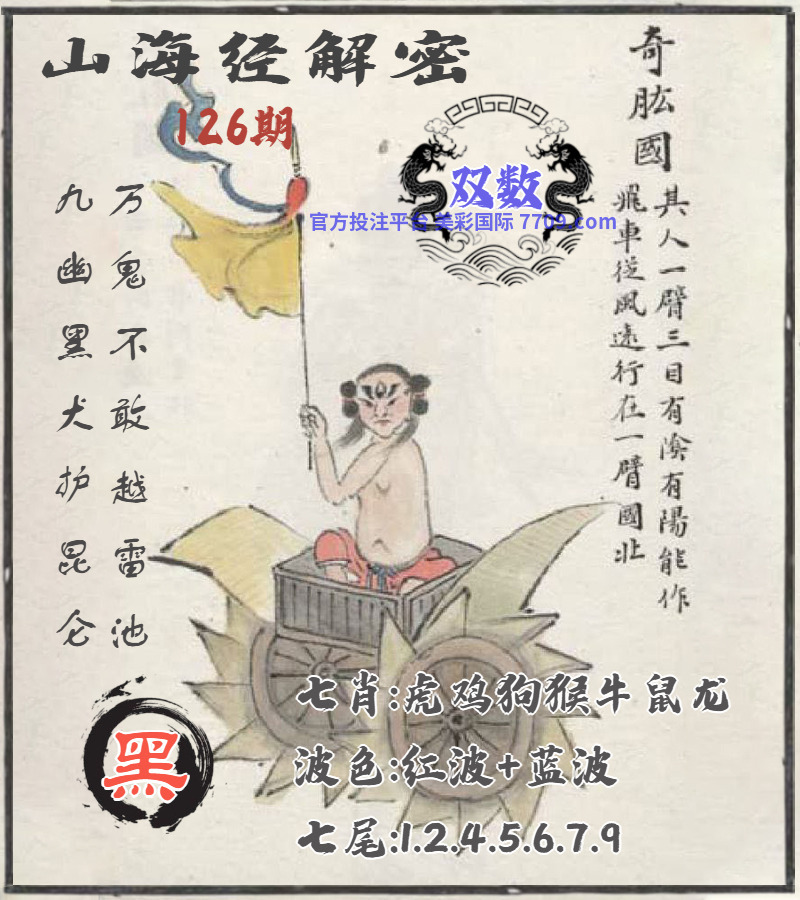 山海经解密
126期
奇肱國
其人一臂三目有陰有陽能作
飛車從風遠行在一臂國北
双数
官方投注平台 美彩国际 7709.com
万鬼不敢越雷池
九幽黑犬护昆仑
黑
七肖:虎鸡狗猴牛鼠龙
波色:红波+蓝波
七尾:1.2.4.5.6.7.9